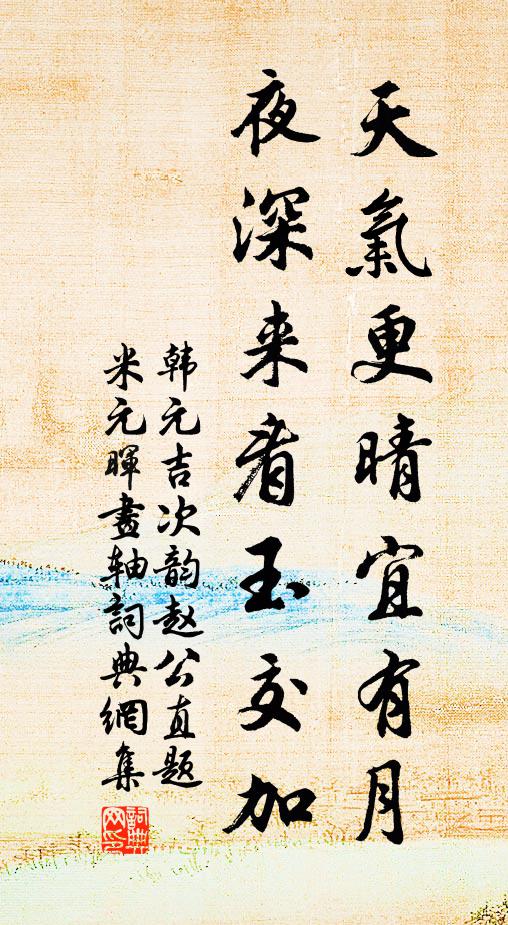 天氣更晴宜有月
夜深来看玉交加
韩元吉次韵赵公直题
米元暉畫轴詞典網集
詞典网印